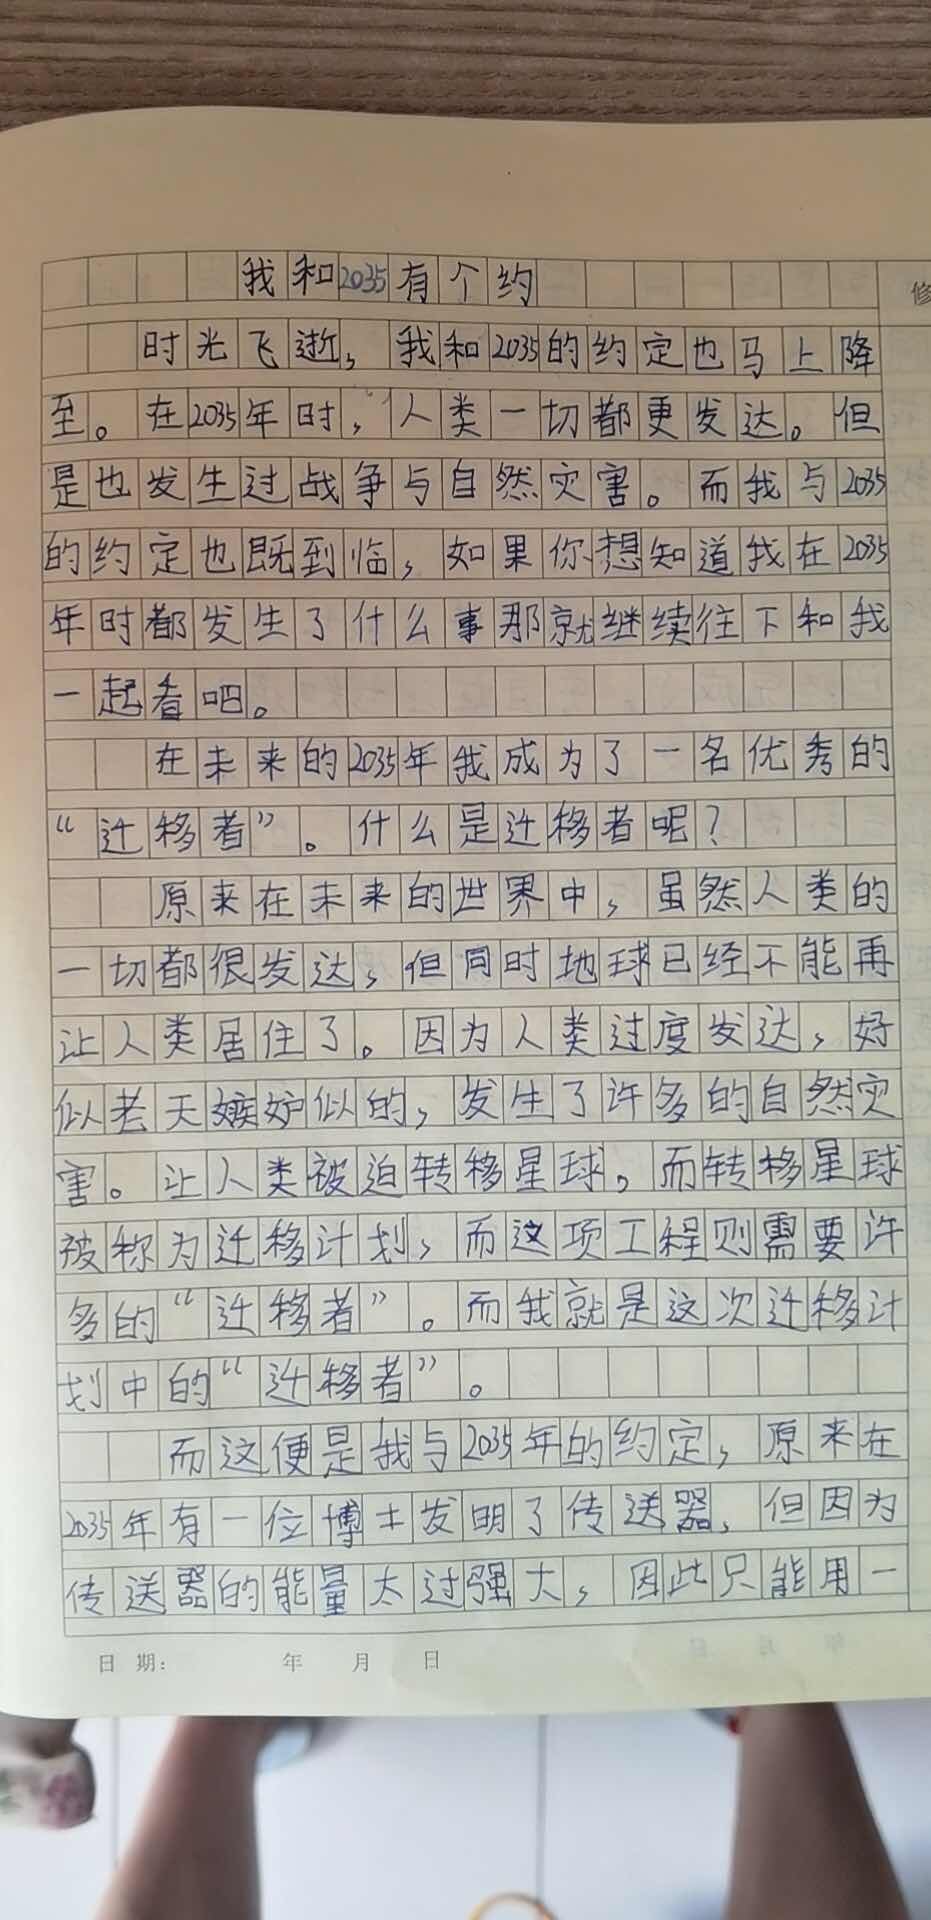 我和2035有个约
修
时光飞逝，我和2035的约定也马上降
至。在2035年时，人类一切都更发达。但
是也发生过战争与自然灾害。而我与2035
的约定也既到临，如果你想知道我在2035
年时都发生了什么事那就继续往下和我
一起看吧。
在未来的2035年我成为了一名优秀的
“迁移者”。什么是迁移者呢？
原来在未来的世界中，虽然人类的
一切都很发达，但同时地球已经不能再
让人类居住了。因为人类过度发达，好
似老天嫉妒似的，发生了许多的自然灾
害。让人类被迫转移星球，而转移星球
被称为迁移计划，而这项工程则需要许
多的“迁移者”。而我就是这次迁移计
划中的“迁移者”。
而这便是我与2035年的约定，原来在
2035年有一位博士发明了传送器，但因为
传送器的能量太过强大，因此只能用一
日期： 年 月 日